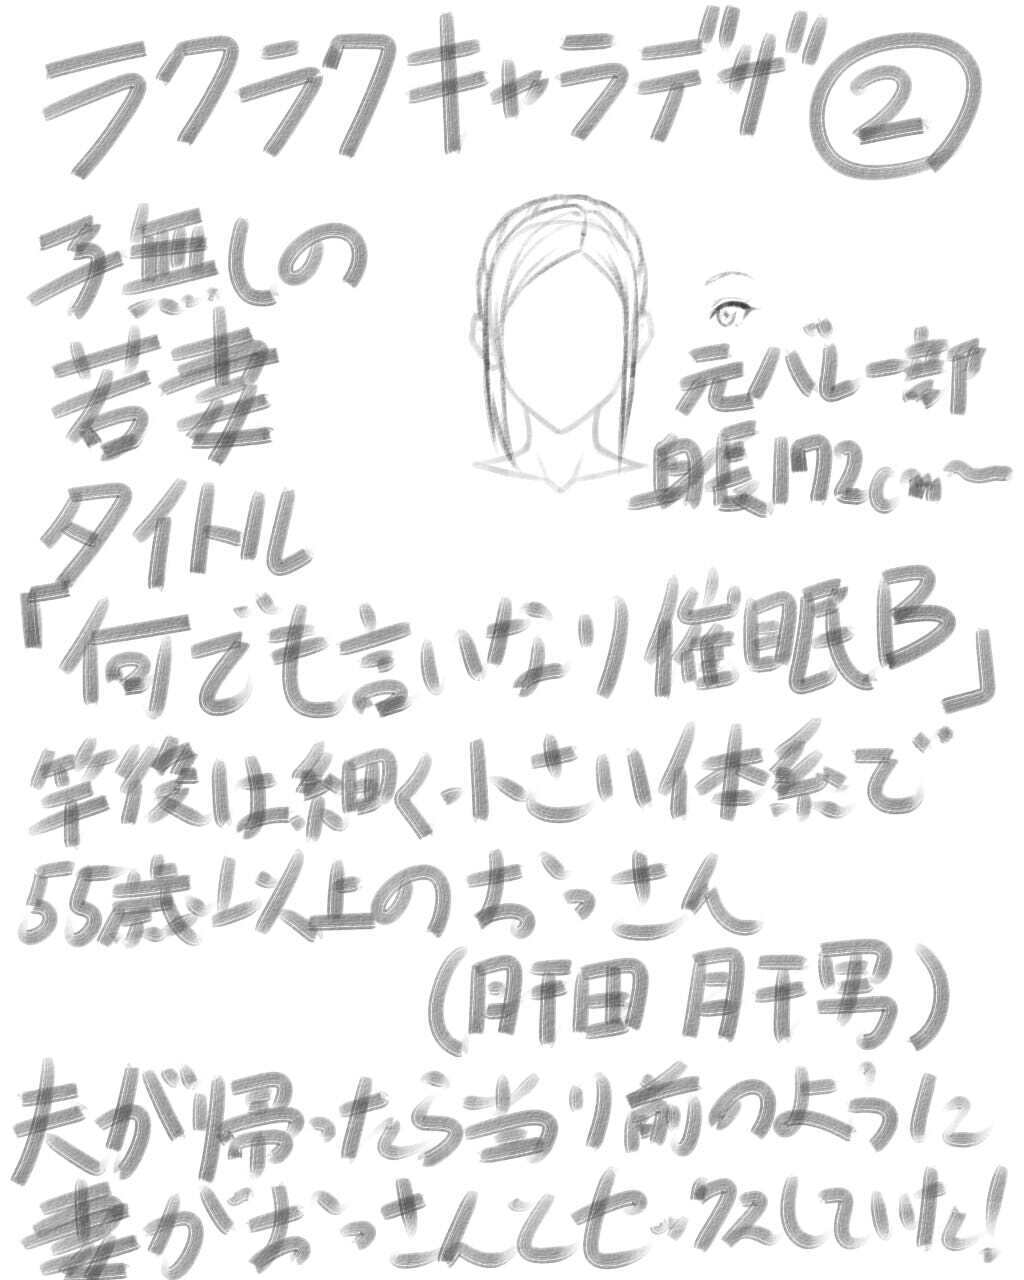 ラクラクキャラデザ②
子無しの
若妻
元バレー部
身長172cm〜
タイトル
「何でも言いなり催眠B」
竿役は細く小さい体系で
55歳以上のおっさん
(肝田 肝男)
夫が帰ったら当り前のように
妻がおっさんとセックスしていた!